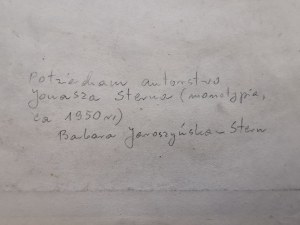 Potwierdzam autorstwo
Jonasza Sterna (monotypia,
ca 1950 r.)
Barbara Jaroszyńska-Stern